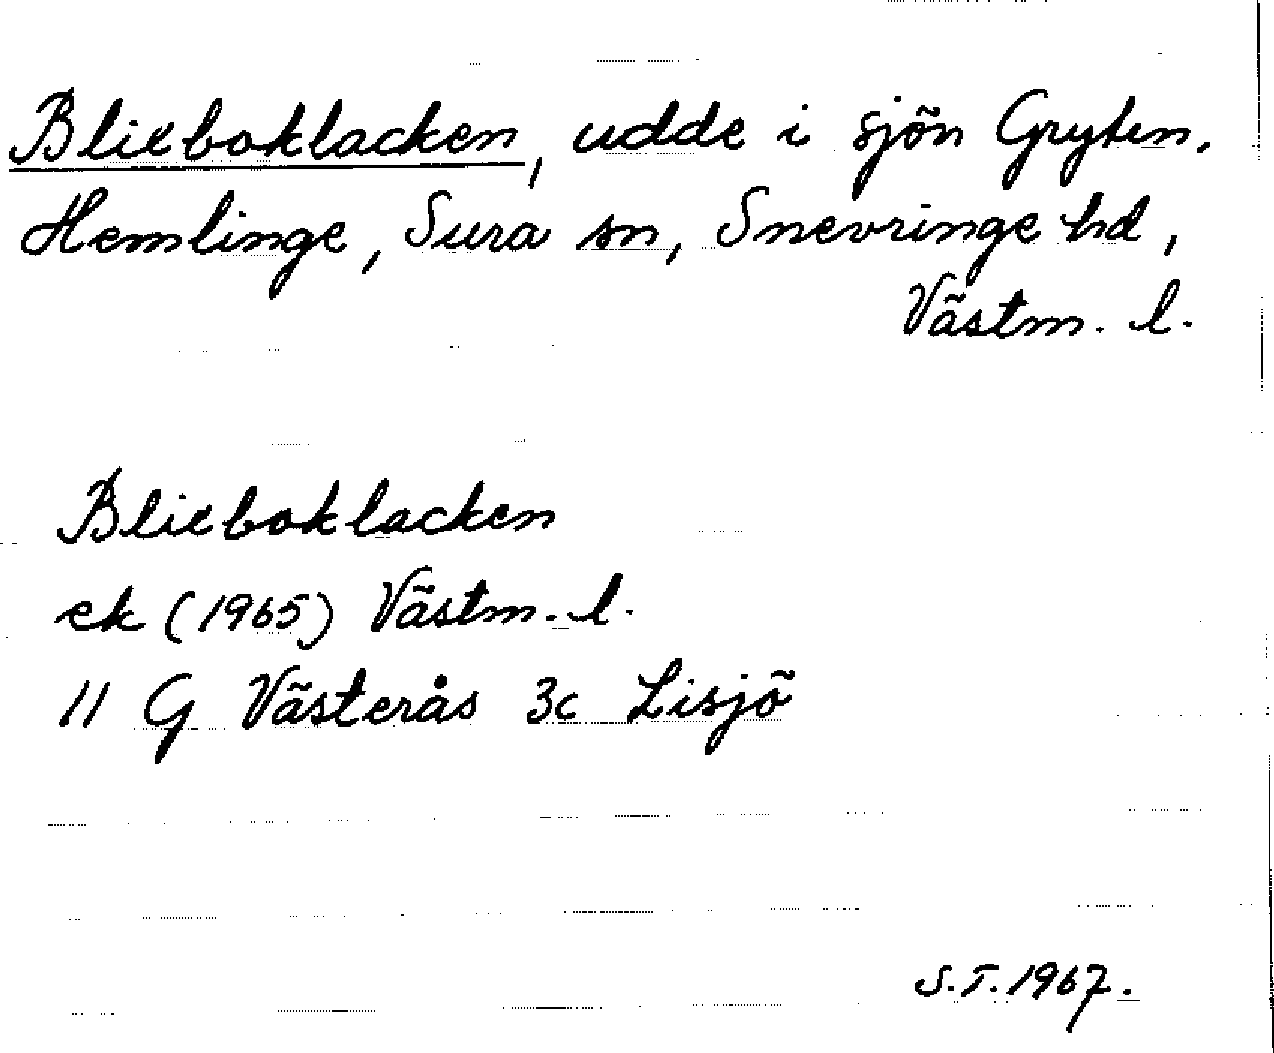 Blieboklacken, udde i sjön Gryten.
Hemlinge, Sura sn, Snevringe hd,
Västm. l.
Blieboklacken
ek (1965) Västm. l.
11 G Västerås 3c Lisjö
S.T. 1967.